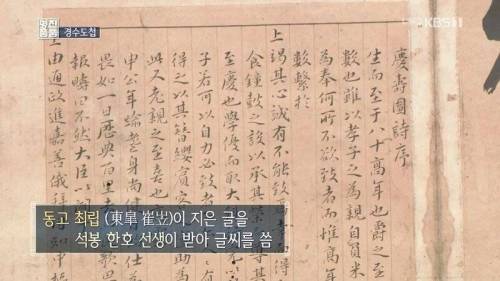 명작품
경수도첩
KBS1
慶壽圖詩序
生而至于八十高年也爵之至
數也雖以孝子之爲親自米
爲奉何所不欲致者而惟高年
數繫於
上竭其心誠有不能致
食鐘鼓之設以承其
至慶也學優而取大
子若可以自力必致者
得之以其簪纓賓客
此又老親之至喜也
申公年踰耋身尚健
畏如一日歷典百里
報疇曰不然大臣以詞
上由通政進嘉善俄拜
동고 최립 (東皐 崔岦)이 지은 글을
석봉 한호 선생이 받아 글씨를 씀